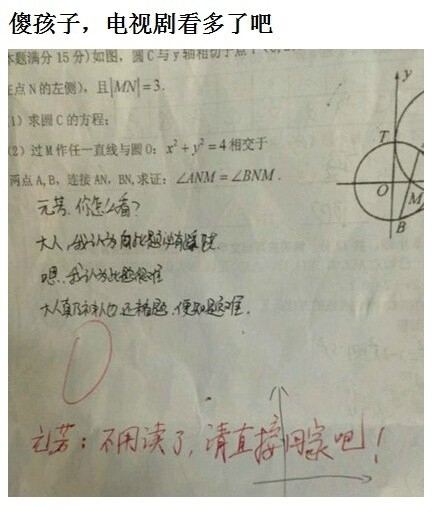 傻孩子，电视剧看多了吧
本题满分 15 分)如图，圆 C 与 y 轴相切于点 T
在点 N 的左侧)，且|MN|=3.
1) 求圆 C 的方程;
(2) 过 M 作任一直线与圆 O: x²+y²=4 相交于
两点 A,B，连接 AN，BN,求证: ∠ANM=∠BNM.
y
T
O
M
B
元芳,你怎么看?
大人,我认为此题没有
嗯,我认为此题很难
大人真乃神人也,还 题,便知 难.
0
元芳: 不用读了,请直接回家吧!